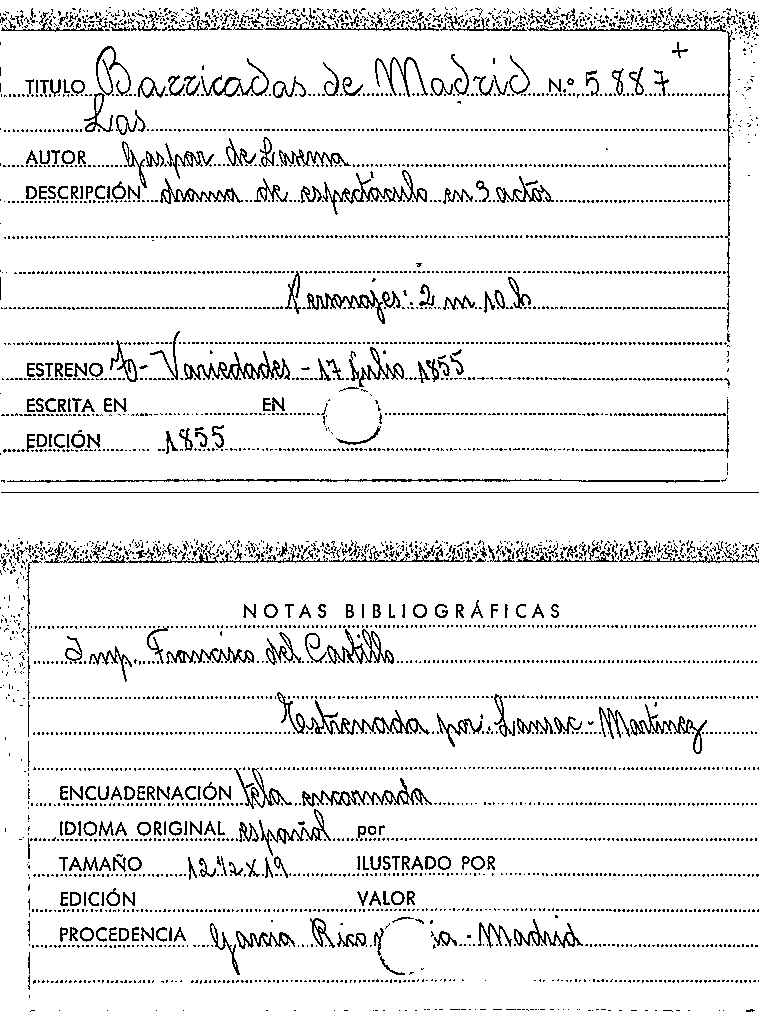 +
TITULO Barricadas de Madrid N.º 5887
Las
AUTOR Gaspar de Laserna
DESCRIPCIÓN drama de espectáculo en 3 actos
Personajes: 2 m 10 h
ESTRENO Variedades - 17 Julio 1855
ESCRITA EN EN
EDICIÓN 1855
NOTAS BIBLIOGRÁFICAS
Imp. Francisco del Castillo
Estrenada por: Lansac - Martinez
ENCUADERNACIÓN tela encarnada
IDIOMA ORIGINAL español por
TAMAÑO 12 1/2 x 19 ILUSTRADO POR
EDICIÓN VALOR
PROCEDENCIA Garcia Rico y ia - Madrid